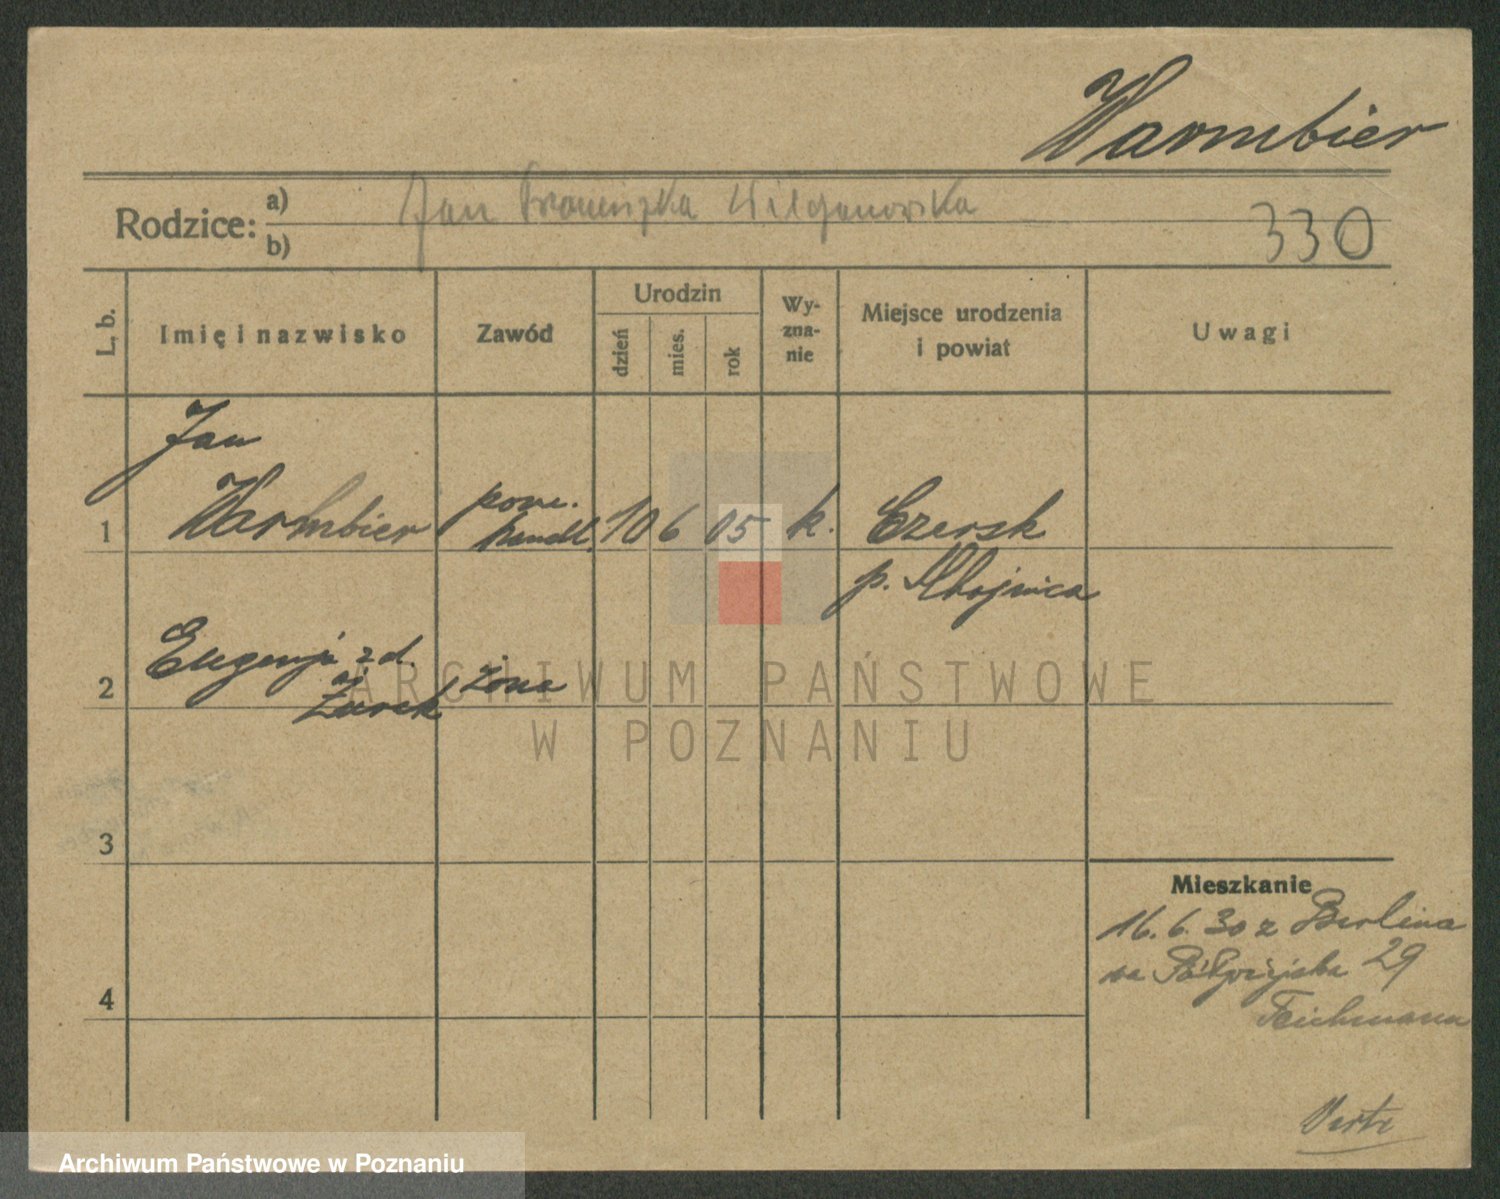 Warmbier
Rodzice: a) Jan Franciszka
b)
330
L. b.
Imię i nazwisko
Zawód
Urodzin
dzień
mies.
rok
Wy-
zna-
nie
Miejsce urodzenia
i powiat
Uwagi
Jan
1 Warmbier pom. handl. 10 6 05 k. Czersk
p. Chojnice
2 Eugenja z d. żona
Żurek
3
4
Mieszkanie
16.6.30 z Berlina
na Półwiejska 29
Teichmann
Verte
ARCHIWUM PAŃSTWOWE
W POZNANIU
Archiwum Państwowe w Poznaniu